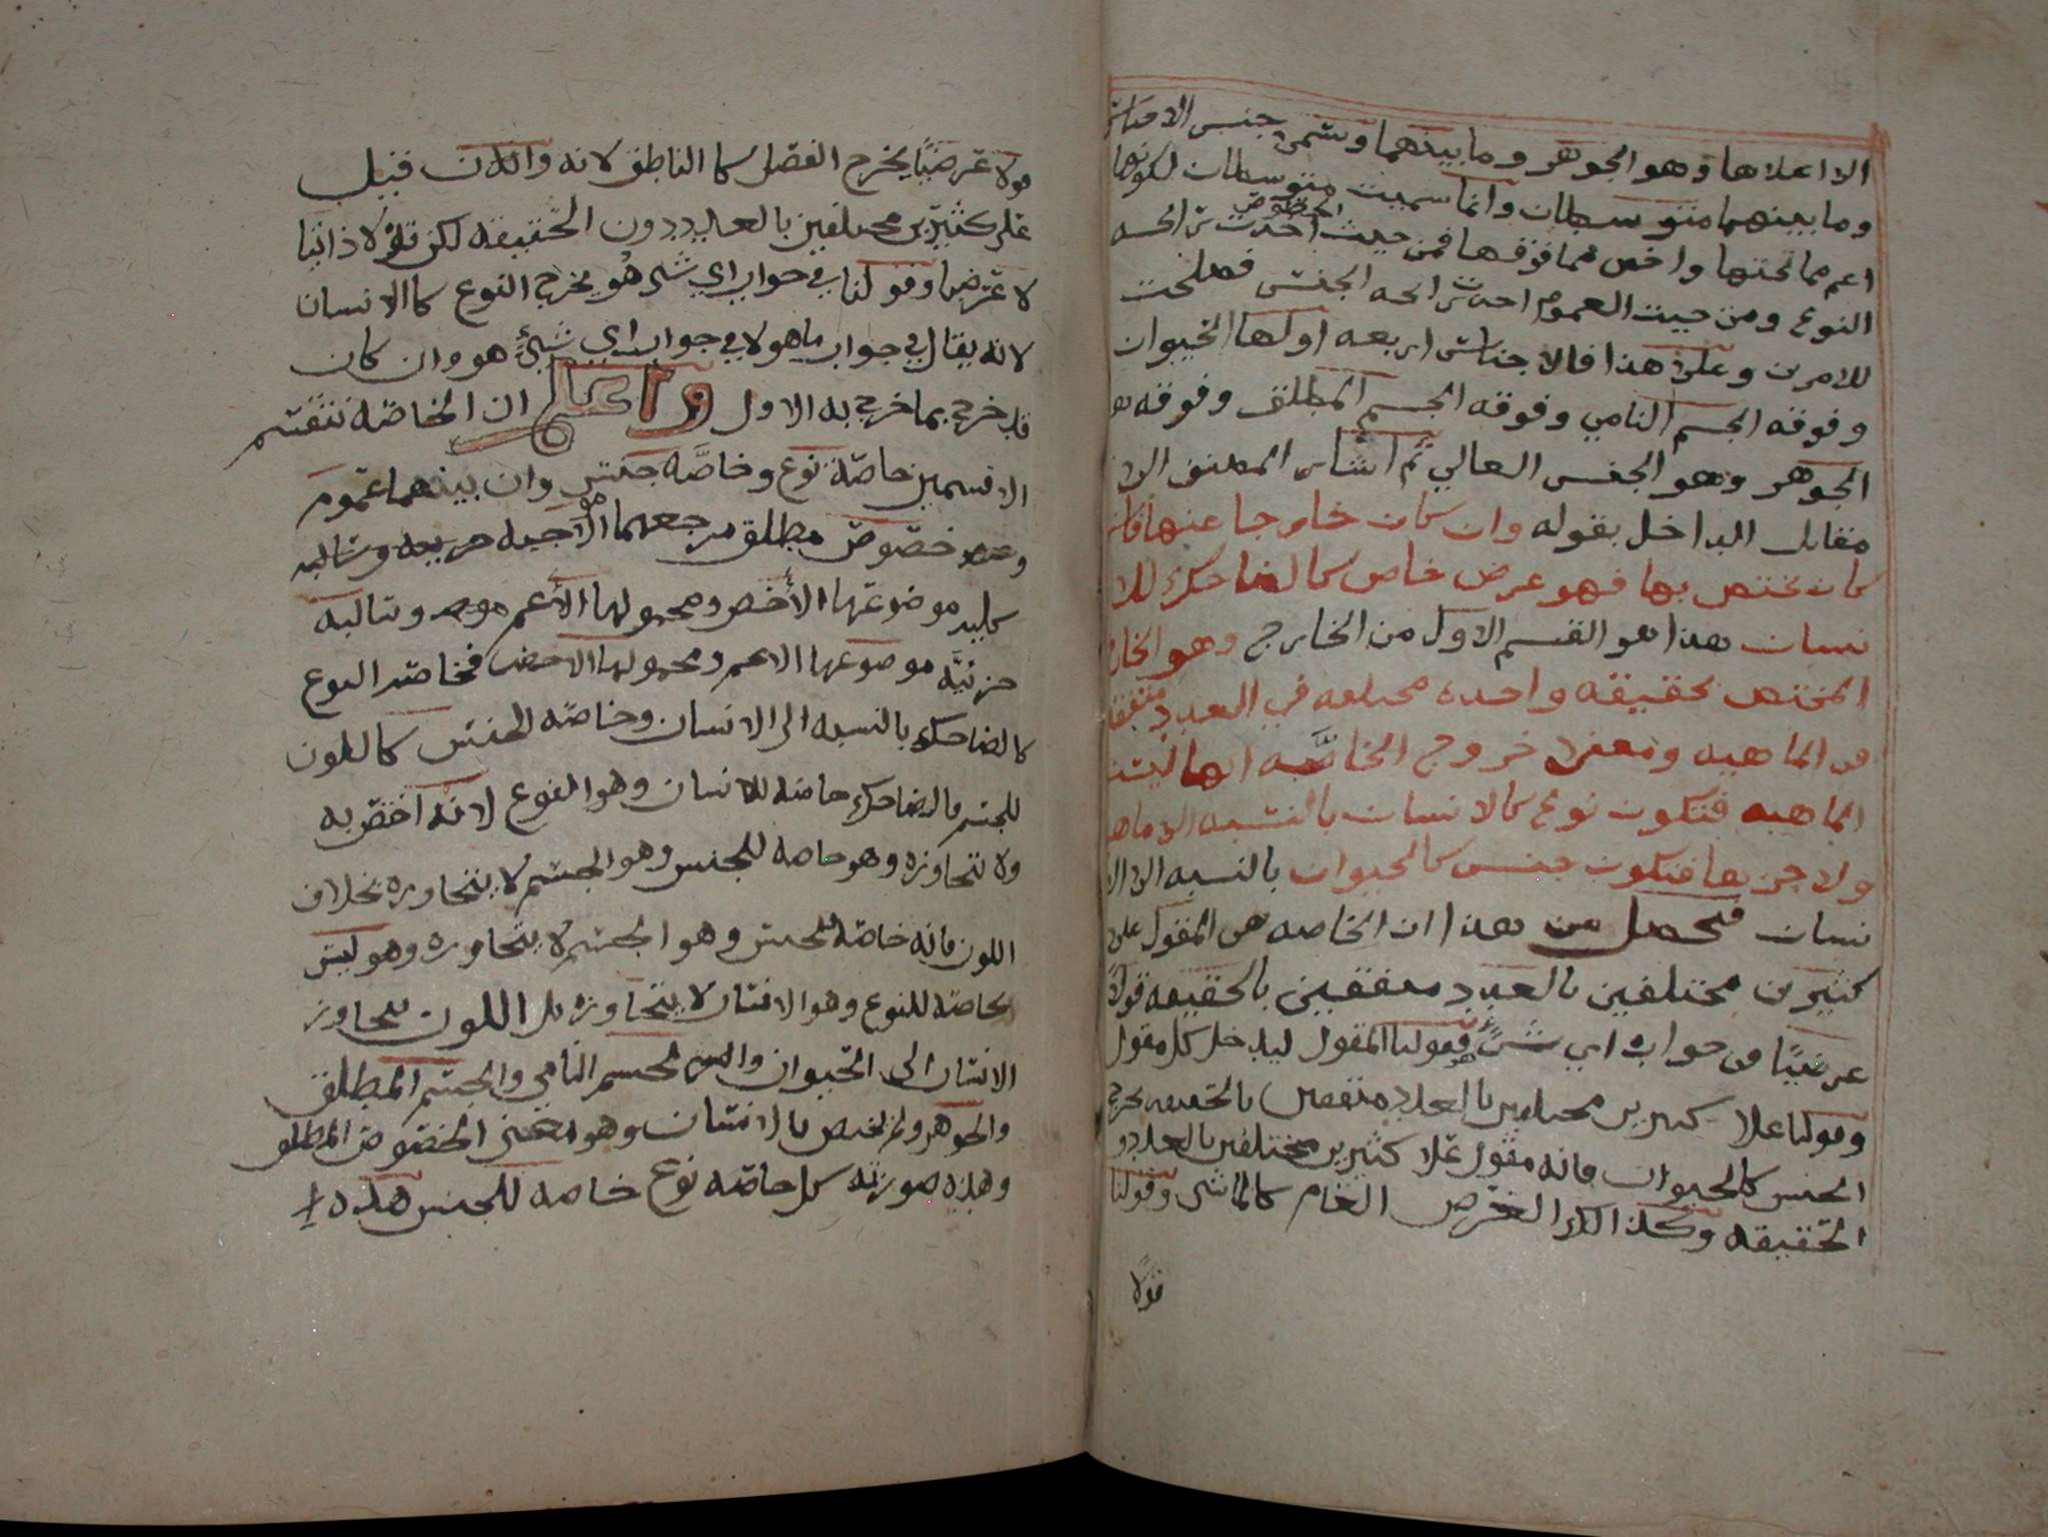 الا اعلاها وهو الجوهر وما بينهما وتسمى جنس الاجناس
وما بينهما متوسطات وانما سميت متوسطات لكونها
اعم مما تحتها واخص مما فوقها فمن حيث الخصوص احدث رائحه
النوع ومن حيث العموم احدث رائحه الجنس فصلحت
للامرين وعلى هذا فالاجناس اربعه اولها الحيوان
وفوقه الجسم النامي وفوقه الجسم المطلق وفوقه
الجوهر وهو الجنس العالي ثم اشار المصنف الى
مقابل الداخل بقوله وان كان خارجا عنها فان
كان يختص بها فهو عرض خاص كالضاحك للا
نسان هذا هو القسم الاول من الخارج وهو الخارج
المختص بحقيقه واحده مختلفه في العدد متفقه
في الماهيه ومعنى خروج الخاصَّه انها ليست
الماهيه فتكون نوع كالانسان بالنسبه الى ماهيـ
ولا جزءها فتكون جنس كالحيوان بالنسبه الى الا
نسان فتحصل من هذا ان الخاصه هي المقول على
كثيرين مختلفين بالعدد متفقين بالحقيقه قولاً
عرضيًا في جواب اي شئ هو فقولنا المقول ليدخل كل مقول
وقولنا علا كثيرين مختلفين بالعدد متفقين بالحقيقه يخرج
الجنس كالحيوان فانه مقول علا كثيرين مختلفين بالعدد و
الحقيقه وكذالك العرض العام كالماشي وقولنا
قولا
قولا عرضيًا يخرج الفصل كالناطق لانه والكان قيل
على كثيرين مختلفين بالعدد دون الحقيقه لكن قولا ذاتيا
لا عرضيا وقولنا في جواب اي شي هو يخرج النوع كالانسان
لانه يقال في جواب ما هو لا في جواب اي شيء هو وان كان
قد خرج بما خرج به الاول واعلم ان الخاصه تنقسم
الا قسمين خاصة نوع وخاصَّه جنس وان بينهما عموم
وخصوص مطلق مرجعهما الا
موضوعها الأخص ومحمولها الأعم وسالبه
جزئيَّه موضوعها الاعم ومحمولها الاخص فخاصه النوع
كالضاحك بالنسبه الى الانسان وخاصه الجنس كاللون
للجسم فالضاحك خاصه للانسان وهو النوع لانه اختص به
ولا يتجاوزه وهو خاصه للجنس وهو الجسم لا يتجاوزه بخلاف
اللون فانه خاصه للجنس وهو الجسم لا يتجاوزه وهو ليس
بخاصه للنوع وهو الانسان لا يتجاوزه بل اللون يتجاوز
الانسان الى الحيوان والى الجسم النامي والجسم المطلق
والجوهر ولم يختص بالانسان وهو معنى الخصوص المطلق
وهذه صورته كل خاصه نوع خاصه للجنس هذه